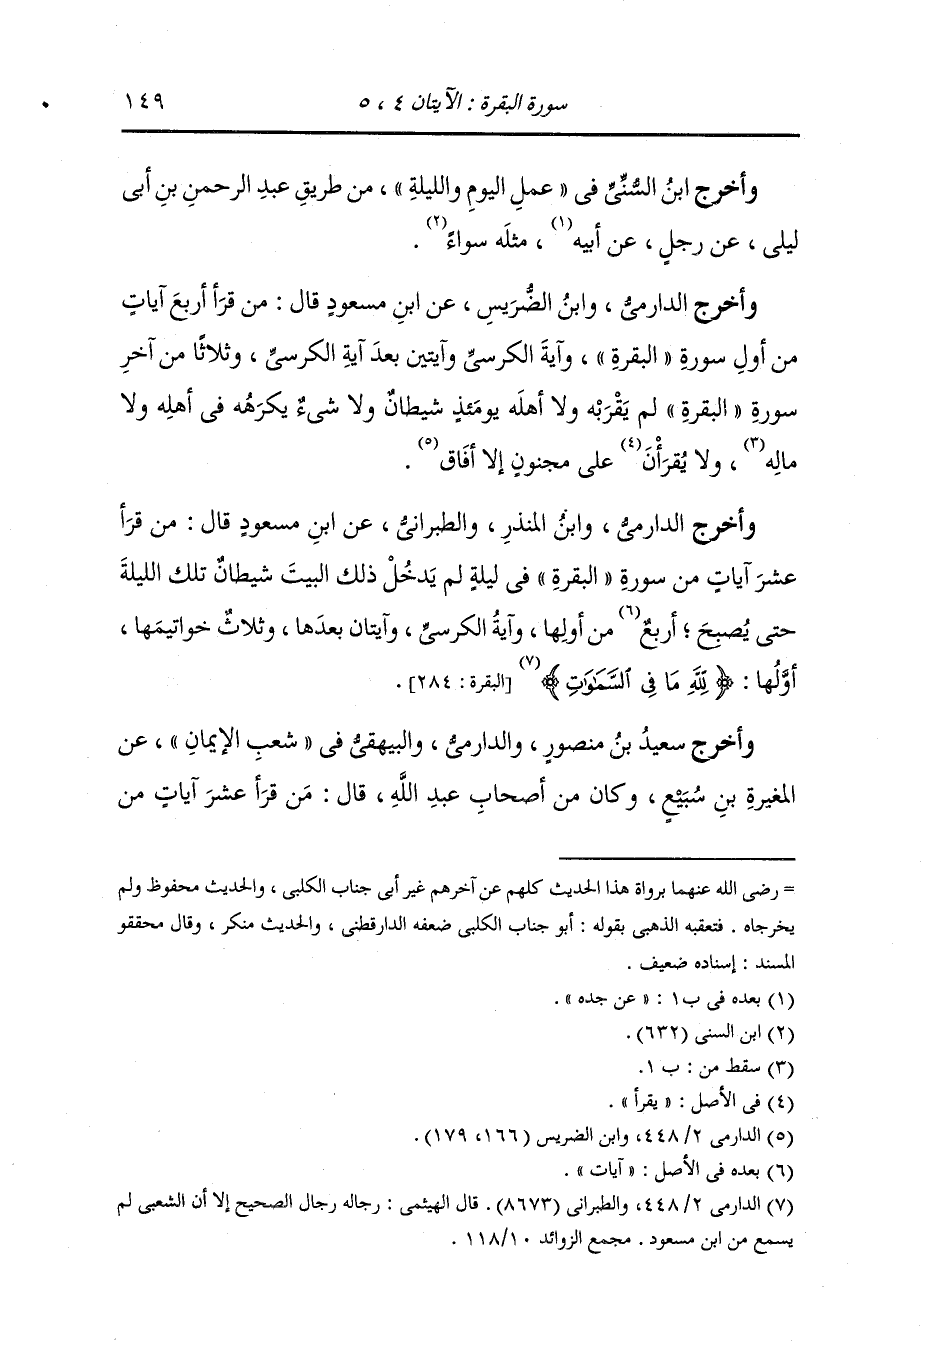 سورة البقرة : الآيتان ٤ ، ٥ ١٤٩
وأخرج ابنُ السُّنِّىِّ فى « عملِ اليومِ والليلةِ » ، من طريقِ عبدِ الرحمنِ بنِ أبى
ليلى ، عن رجلٍ ، عن أبيه(١) ، مثلَه سواءً(٢) .
وأخرج الدارمىُّ ، وابنُ الضُّرَيسِ ، عن ابنِ مسعودٍ قال : من قرَأ أربعَ آياتٍ
من أولِ سورةِ « البقرةِ » ، وآيةَ الكرسىِّ وآيتين بعدَ آيةِ الكرسىِّ ، وثلاثًا من آخرِ
سورةِ « البقرةِ » لم يَقْرَبْه ولا أهلَه يومَئذٍ شيطانٌ ولا شىءٌ يكرَهُه فى أهلِه ولا
مالِه(٣) ، ولا يُقرَأْنَ(٤) على مجنونٍ إلا أفَاق(٥) .
وأخرج الدارمىُّ ، وابنُ المنذرِ ، والطبرانىُّ ، عن ابنِ مسعودٍ قال : من قرَأ
عشرَ آياتٍ من سورةِ « البقرةِ » فى ليلةٍ لم يَدخُلْ ذلك البيتَ شيطانٌ تلك الليلةَ
حتى يُصبِحَ ؛ أربعٌ(٦) من أولِها ، وآيةُ الكرسىِّ ، وآيتان بعدَها ، وثلاثٌ خواتيمَها ،
أوَّلُها : ﴿ لِلَّهِ مَا فِى ٱلسَّمَٰوَٰتِ ﴾(٧) [البقرة : ٢٨٤] .
وأخرج سعيدُ بنُ منصورٍ ، والدارمىُّ ، والبيهقىُّ فى « شعبِ الإيمانِ » ، عن
المغيرةِ بنِ سُبَيْعٍ ، وكان من أصحابِ عبدِ اللَّهِ ، قال : مَن قرَأ عشرَ آياتٍ من
= رضى الله عنهما برواة هذا الحديث كلهم عن آخرهم غير أبى جناب الكلبى ، والحديث محفوظ ولم
يخرجاه . فتعقبه الذهبى بقوله : أبو جناب الكلبى ضعفه الدارقطنى ، والحديث منكر ، وقال محققو
المسند : إسناده ضعيف .
(١) بعده فى ب١ : « عن جده » .
(٢) ابن السنى (٦٣٢) .
(٣) سقط من : ب ١.
(٤) فى الأصل : « يقرأ » .
(٥) الدارمى ٢/ ٤٤٨، وابن الضريس (١٦٦، ١٧٩) .
(٦) بعده فى الأصل : « آيات » .
(٧) الدارمى ٢/ ٤٤٨، والطبرانى (٨٦٧٣) . قال الهيثمى : رجاله رجال الصحيح إلا أن الشعبى لم
يسمع من ابن مسعود . مجمع الزوائد ١٠/ ١١٨ .